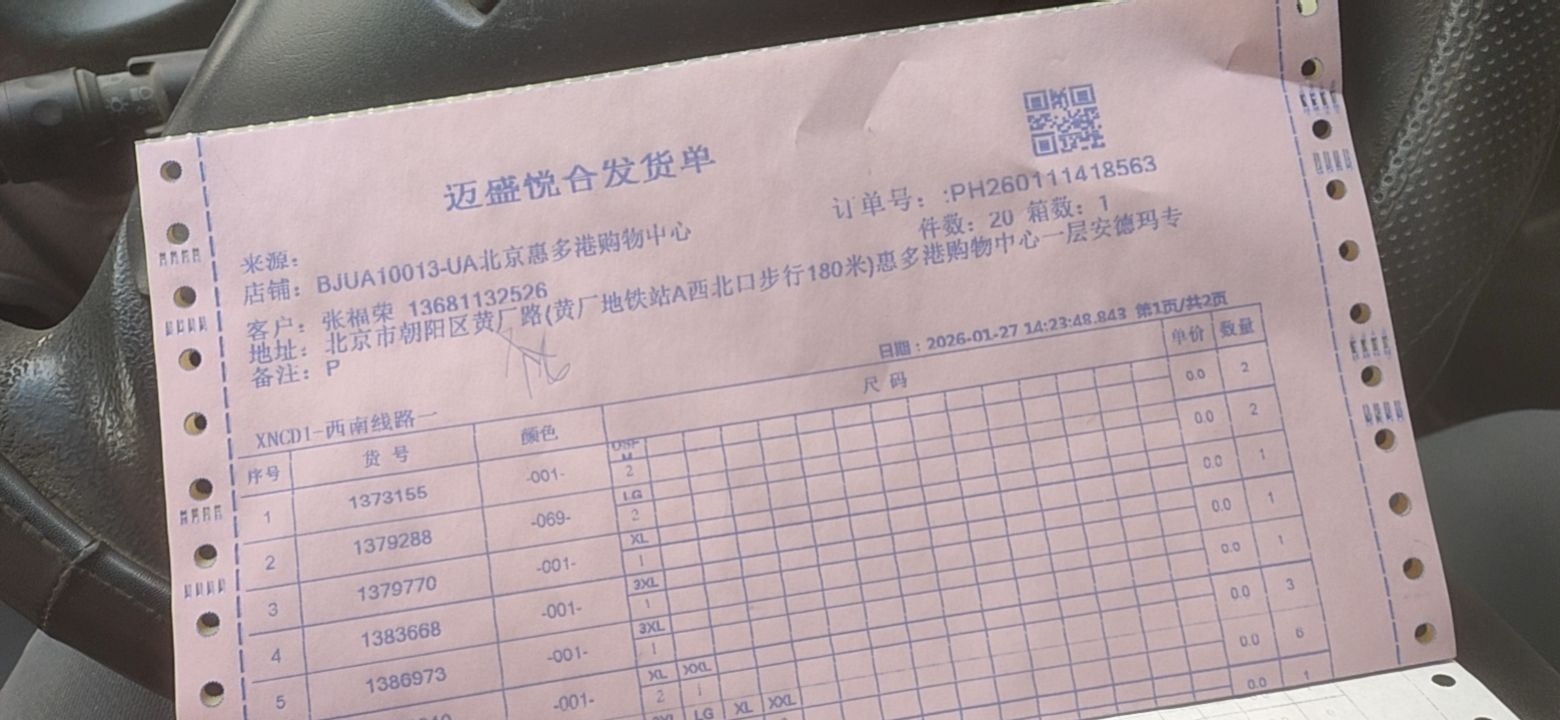 迈盛悦合发货单
订单号：:PH260111418563
件数：20 箱数：1
来源：
店铺：BJUA10013-UA北京惠多港购物中心
客户：张福荣 13681132526
地址：北京市朝阳区黄厂路(黄厂地铁站A西北口步行180米)惠多港购物中心一层安德玛专
备注：P
日期：2026-01-27 14:23:48.843 第1页/共2页
XNCD1-西南线路一
序号 货号 颜色 尺码 单价 数量
1 1373155 -001- 2 0.0 2
LG
2 1379288 -069- 2 0.0 2
XL
3 1379770 -001- 1 0.0 1
3XL
4 1383668 -001- 1 0.0 1
3XL
5 1386973 -001- 1 0.0 1
XL XXL
-001- 2 1 0.0 3
LG XL XXL
0.0 6
0.0 1